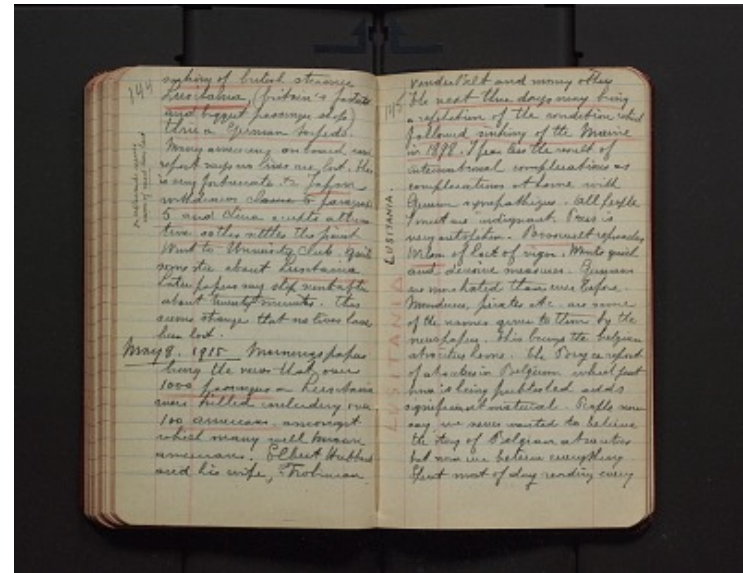 144
sinking of british steamer
Lusitania, (britain's fastest
and biggest passenger ship)
thru a German torpedo.
Many americans on board and
report says no lives are lost. this
is very fortunate. Japan
withdraws clause 5 paragraph
5 and China accepts
so this settles the point
Went to University Club. Quite
some stir about Lusitania
Later papers say ship sank after
about twenty minutes. This
seems strange that no lives have
been lost.
May 8. 1915 Morning papers
bring the news that over
1000 passengers on Lusitania
were killed including over
100 americans. amongst
which many well known
americans. Elbert Hubbard
and his wife, Frohman
145
LUSITANIA.
LUSITANIA
Vanderbilt and many others
The next three days may bring
a repetition of the condition which
followed sinking of the Maine
in 1898. I fear less the result of
international complications as
complications at home with
German sympathizers. All people
I meet are indignant. Press is
very outspoken. Roosevelt reproaches
Wilson of lack of vigor. Wants quick
and decisive measures. Germans
are more hated than ever before.
Murderers, pirates etc. are some
of the names given to them by the
newspapers. This brings the belgian
atrocities home. The Bryce report
of atrocities in Belgium which just
now is being published adds
significant material. People now
say we never wanted to believe
the story of Belgian atrocities
but now we believe everything.
Spent most of day reading every